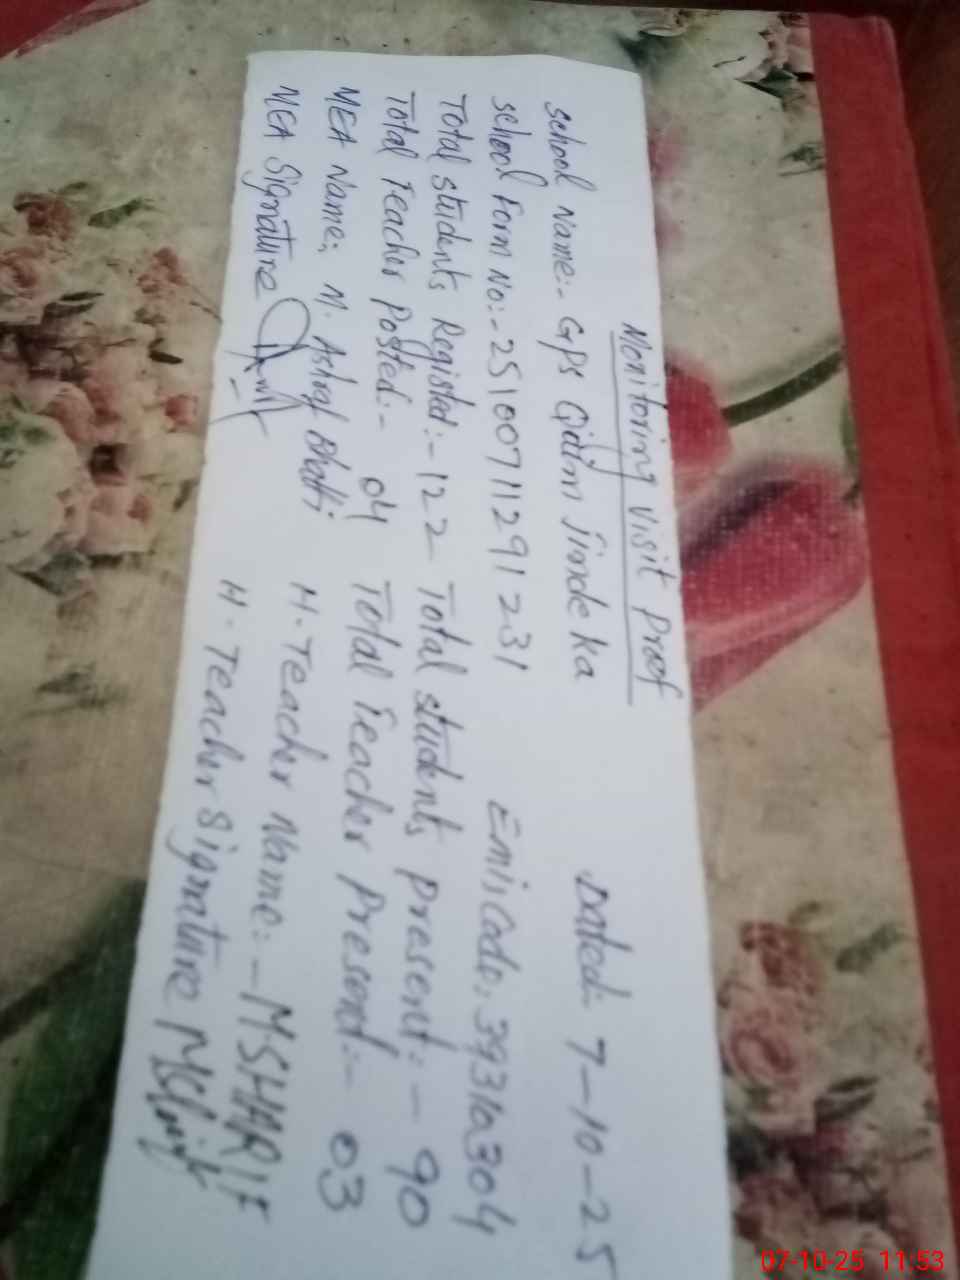 Monitoring Visit Proof
School Name:- GPS Qaim Jinde ka Dated: 7-10-25
School Form No:- 25100711291231 Emis Code: 39310304
Total students Registed:- 122 Total students present:- 90
Total Teacher Posted:- 04 Total Teacher Present:- 03
MEA Name: M. Ashraf Bhatti H. Teacher Name:- M SHARIF
MEA Signature H. Teacher Signature M Sharif
07-10-25 11:53